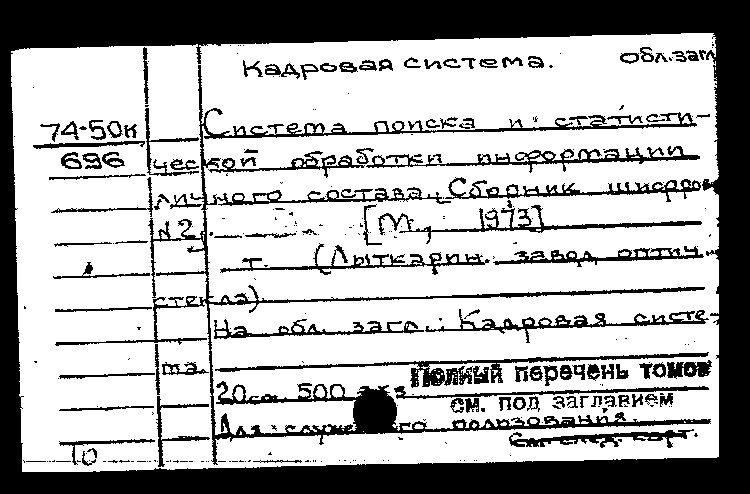 Кадровая система. обл.загл
74-50к Система поиска и статисти-
696 ческой обработки информации
личного состава. Сборник шифров
№2. [М., 1973]
т. (Лыткарин. завод оптич.
стекла)
На обл. загл.: Кадровая систе-
ма.
20см. 500 экз Полный перечень томов
см. под заглавием
Для служебного пользования.
См. след. карт.
10